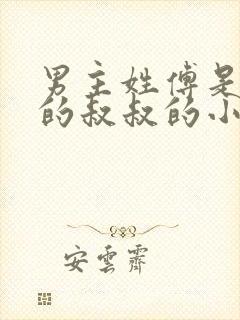 男主姓傅是
的叔叔的小
安雲霽